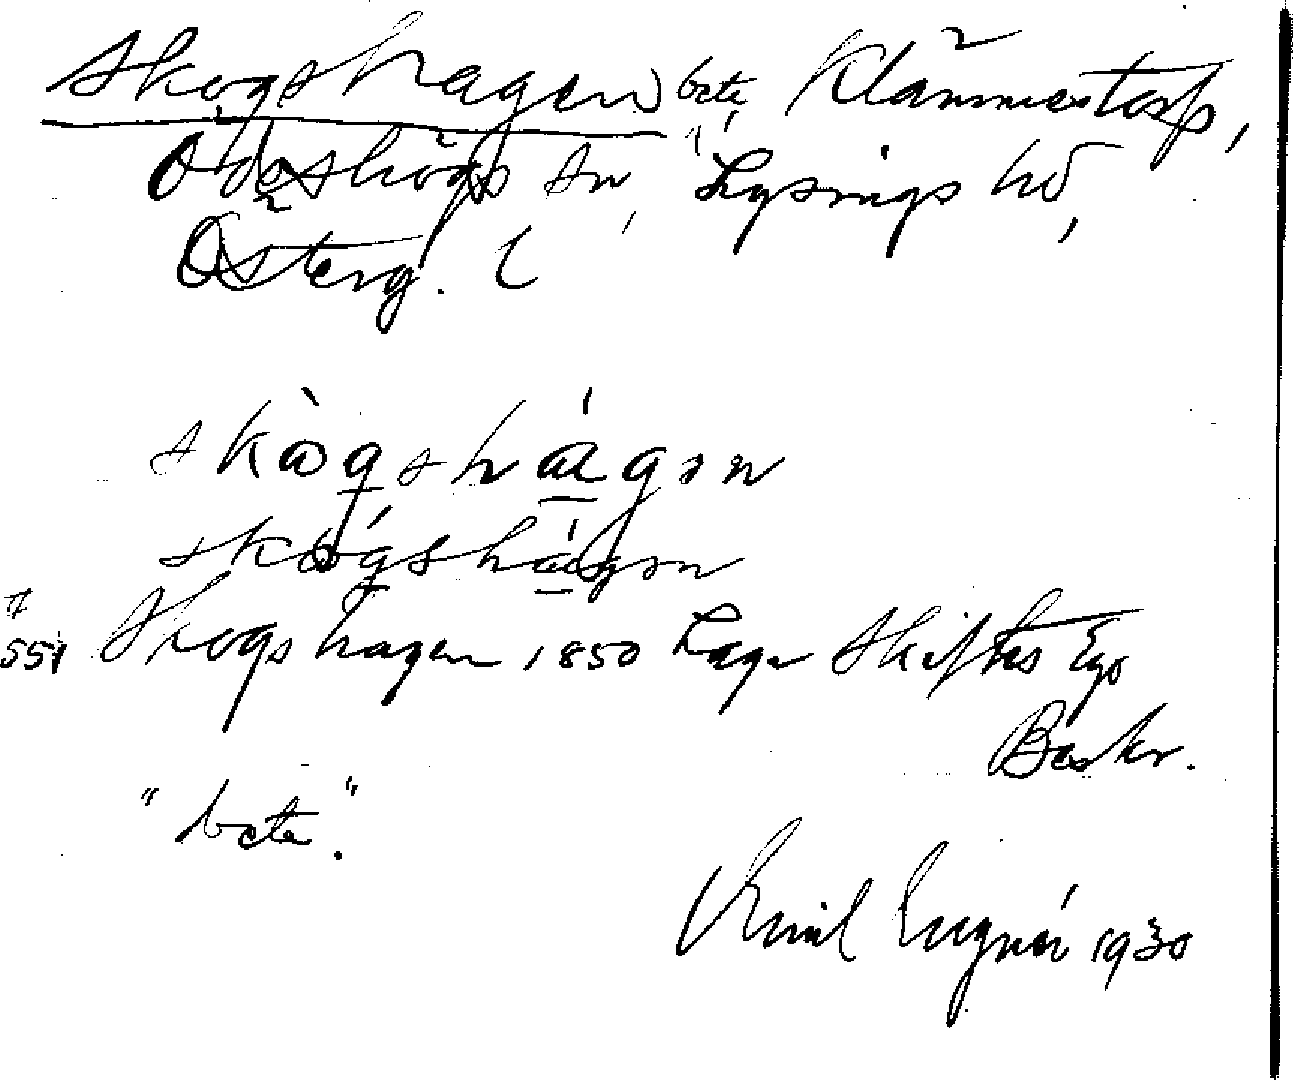 Skogshagen, bete, Klämmestorp,
Ödeshögs sn, Lysings hd,
Österg. l
skògshágən
skógshágən
Skogshagen 1850 Laga Skiftes Ego
Beskr.
"bete".
Emil 1930